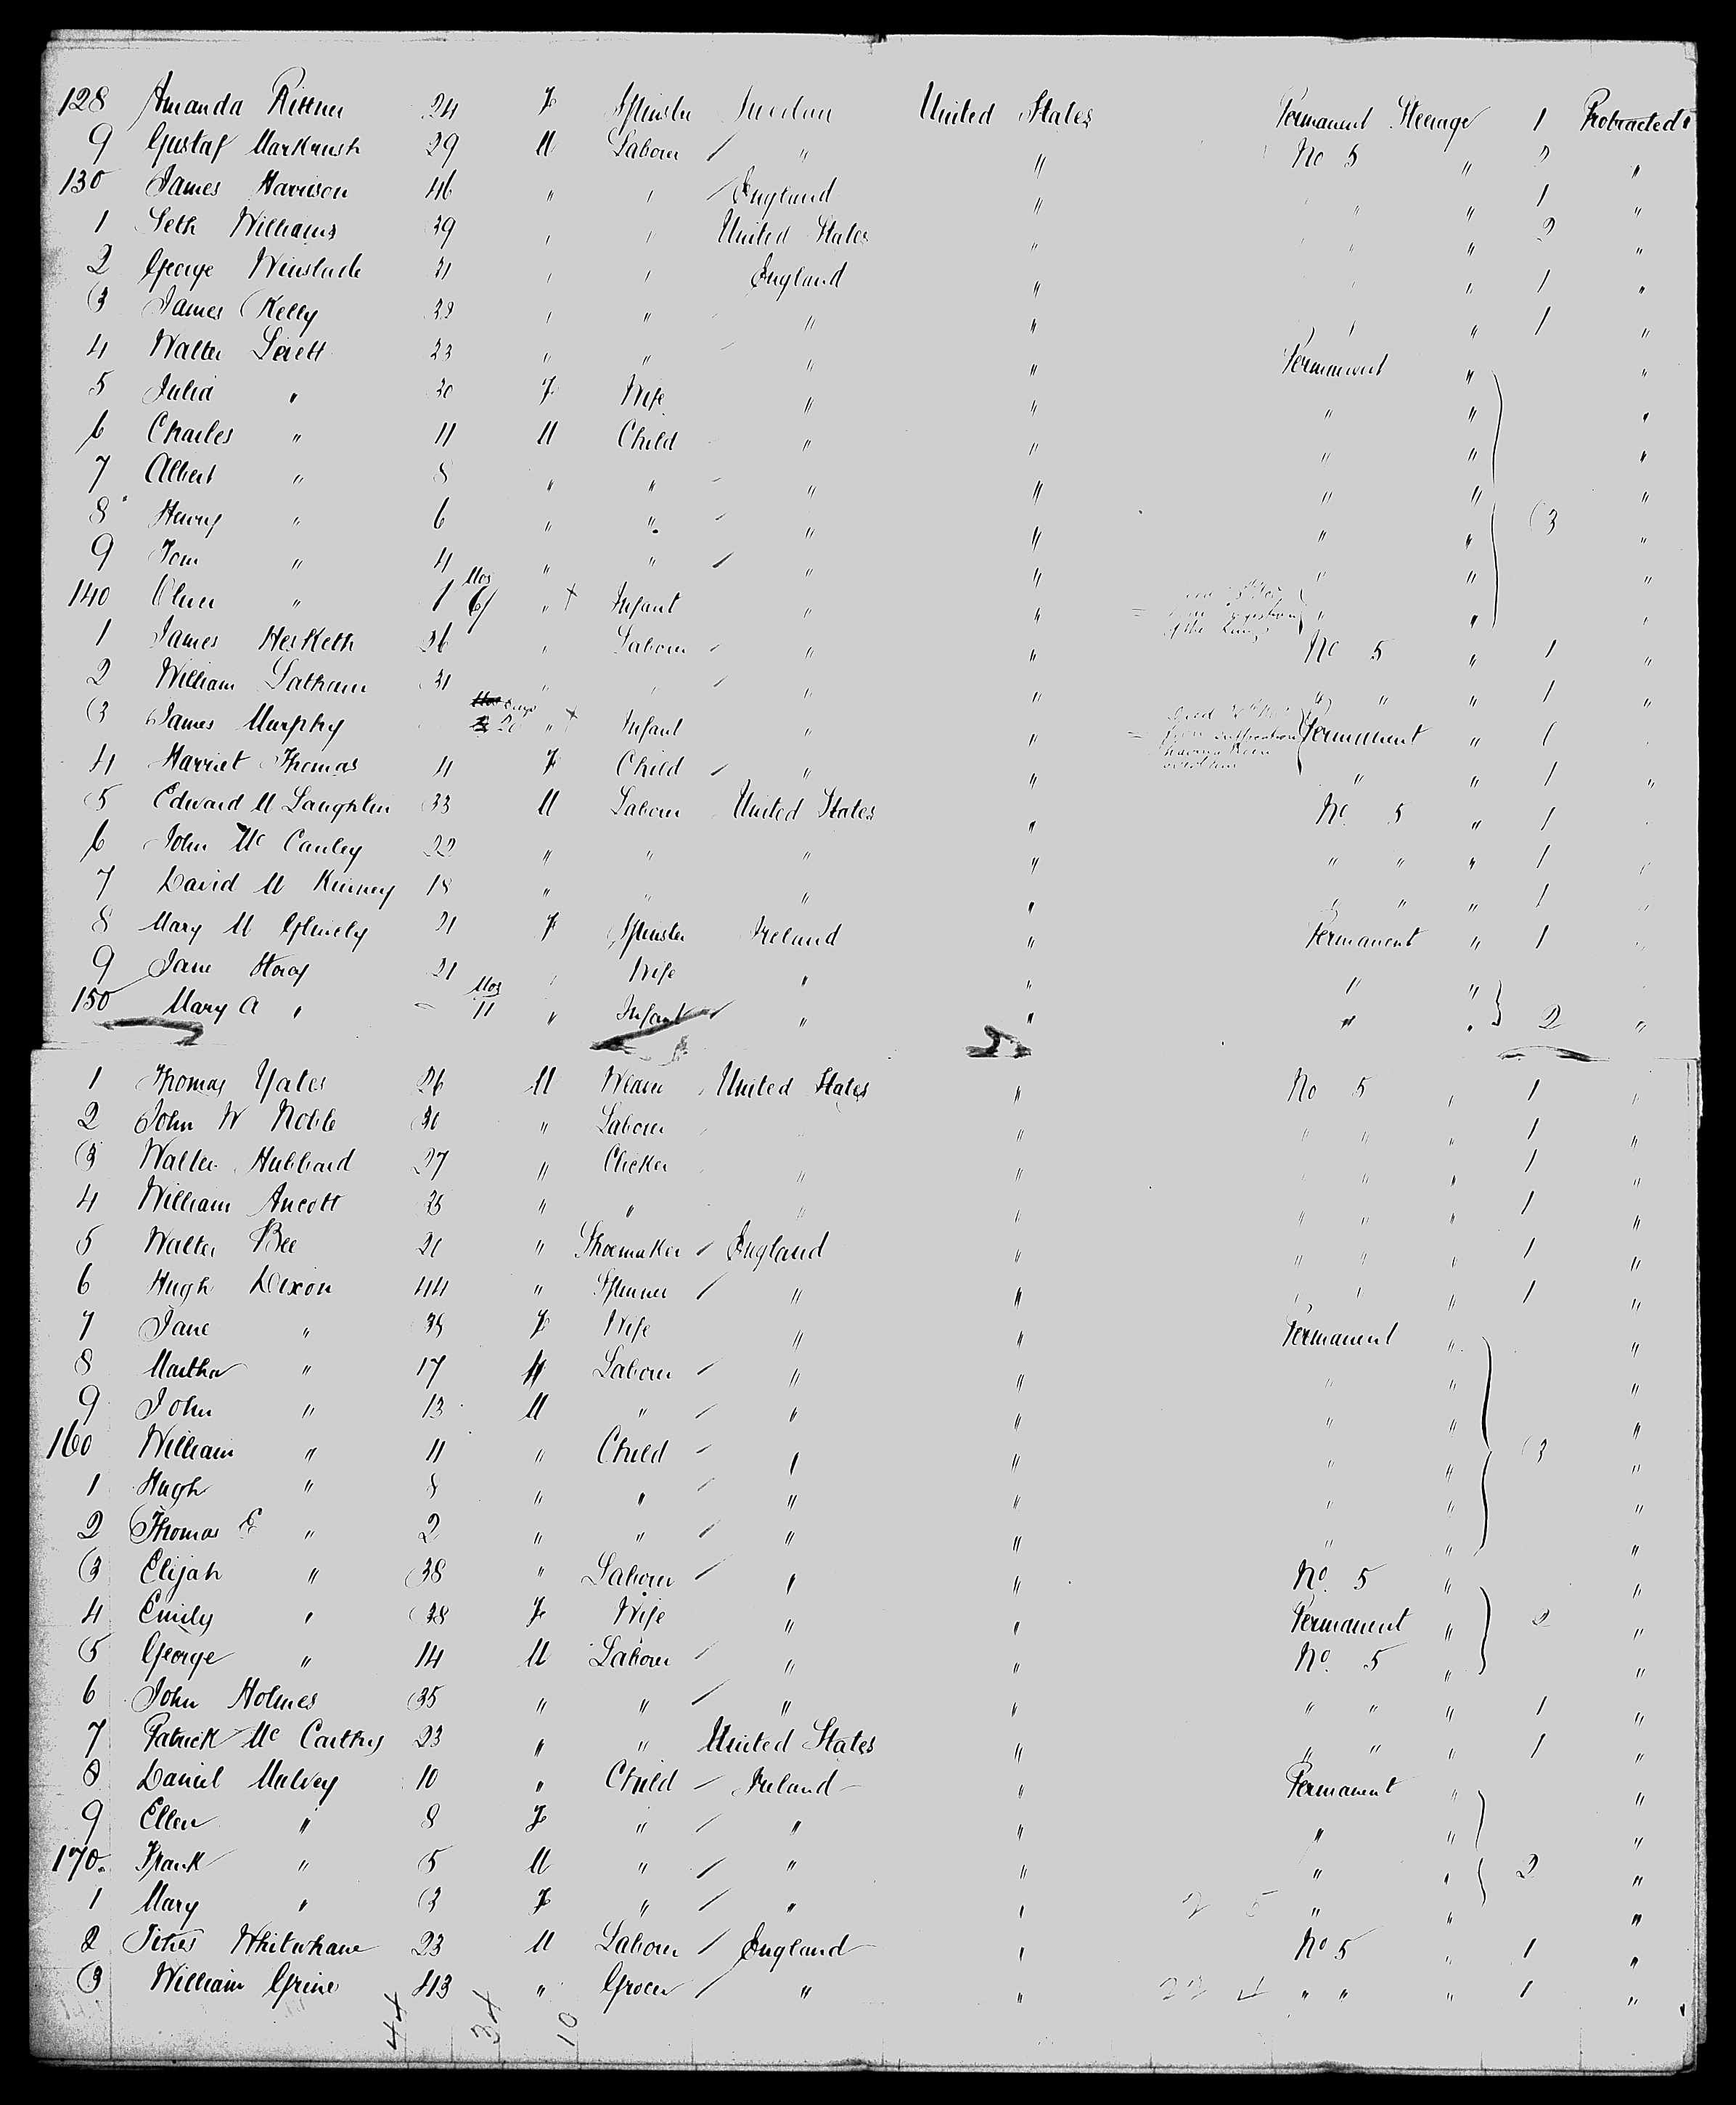 128 Amanda 24 F Spinster Sweden United States Permanent Steerage 1 Protracted
9 Gustaf 29 M Laborer " " No 5 " 2 "
130 James Harrison 46 " " England " " " 1 "
1 Seth Williams 39 " " United States " " " 2 "
2 George Winslade 31 " " England " " " 1 "
3 James Kelly " " " " " " 1 "
4 Walter 23 " " " " Permanent " "
5 Julia " 30 F Wife " " " " "
6 Charles " 11 M Child " " " " "
7 Albert " 8 " " " " " " "
8 Henry " 6 " " " " " " 3 "
9 Tom " 4 " " " " " " "
140 " 1 Mos 6 " + Infant " " " " "
1 James Hesketh 36 " Laborer " " No 5 " 1 "
2 William Latham 31 " " " " " " " 1 "
3 James Murphy Days 20 " + Infant " Permanent " 1
4 Harriet Thomas 11 F Child " " " " 1 "
5 Edward M Laughlin 33 M Laborer United States " No 5 " 1
6 John Mc Cauley 22 " " " " " " " 1 "
7 David M Kinney 18 " " " " " " " 1 "
8 Mary M 21 F Spinster Ireland " Permanent " 1 "
9 Jane 21 " Wife " " " "
150 Mary A " Mos 11 " Infant " " " " 2 "
1 Thomas Yates 26 M Weaver United States " No 5 " 1 "
2 John W Noble 30 " Laborer " " " " 1 "
3 Walter Hubbard 27 " Clicker " " " " " 1 "
4 William Ancott " " " " " " " 1 "
5 Walter Bee " Shoemaker England " " " " 1 "
6 Hugh Dixon 44 " Spinner " " " " " 1 "
7 Jane " F Wife " " Permanent " "
8 Martha " 17 Laborer " " " " "
9 John " 13 M " " " " " "
160 William " 11 " Child " " " " 3 "
1 Hugh " 8 " " " " " " "
2 Thomas E " 2 " " " " " " "
3 Elijah " 38 " Laborer " " No 5 " "
4 Emily " 38 F Wife " " Permanent " 2 "
5 George " 14 M Laborer " " No 5 " "
6 John Holmes 35 " " " " " " " 1 "
7 Patrick Mc Carthy 23 " " United States " " " " 1 "
8 Daniel Mulvey 10 " Child Ireland " Permanent " "
9 Ellen " 8 F " " " " " "
170 Frank " 5 M " " " " " 2 "
1 Mary " 3 F " " " 2 5 " " "
2 23 M Laborer England " No 5 " 1 "
3 William Grine 43 " Grocer " " " " " 1 "
10